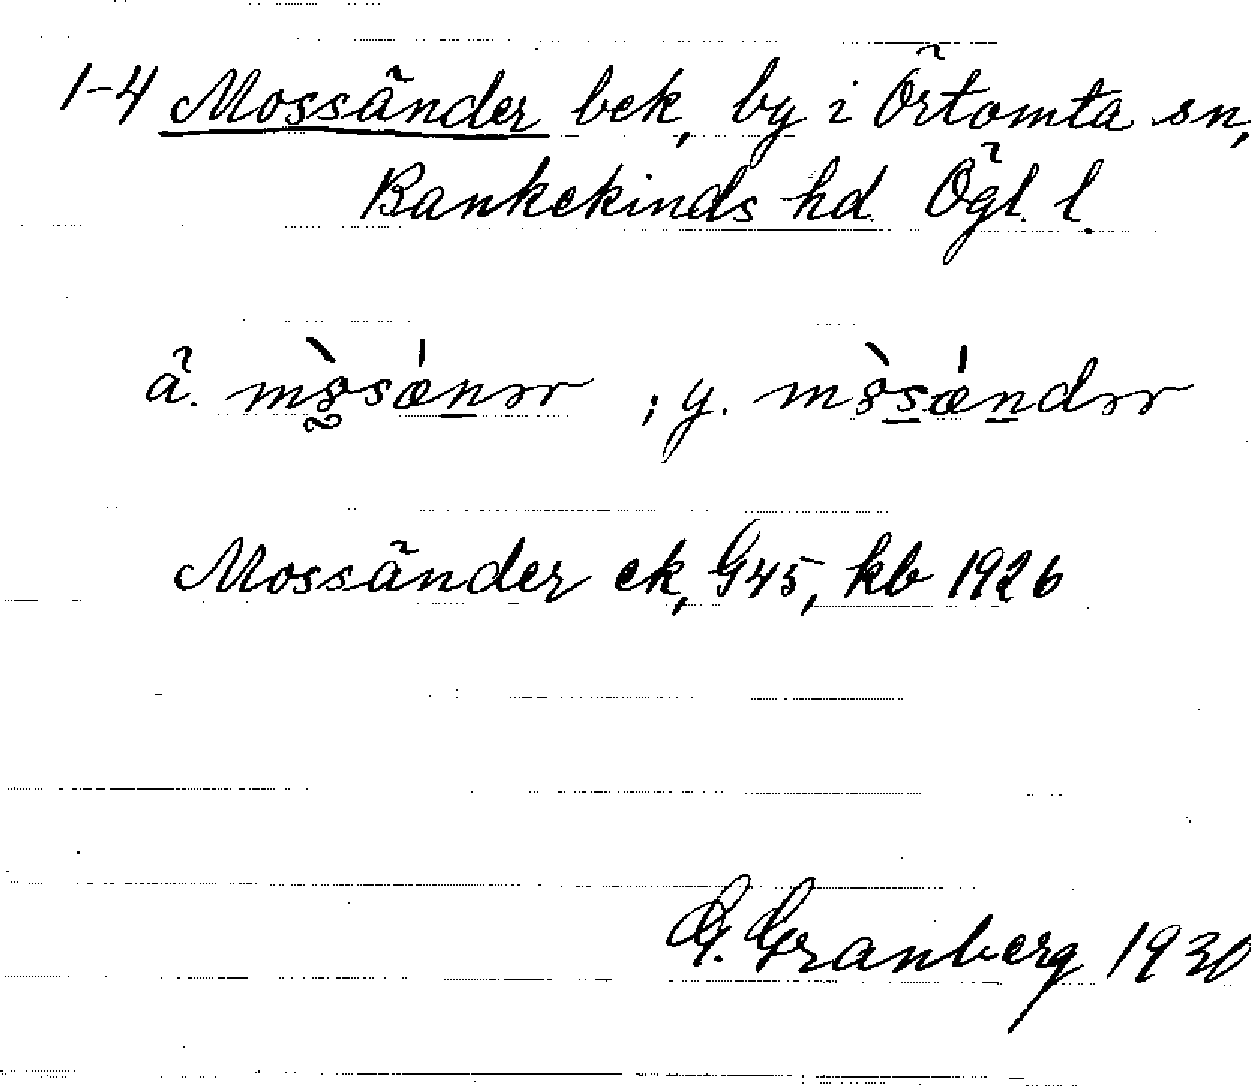 1-4 Mossänder bek, by i Örtomta sn,
Bankekinds hd. Ögl. l.
ä. ; y.
Mossänder ek, G45, kb 1926
G. Granberg 1930